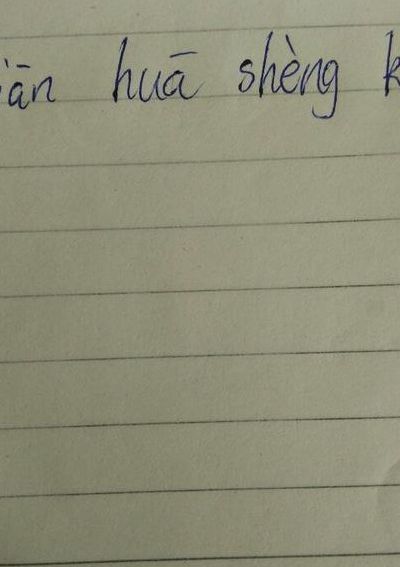 iān huā shèng k